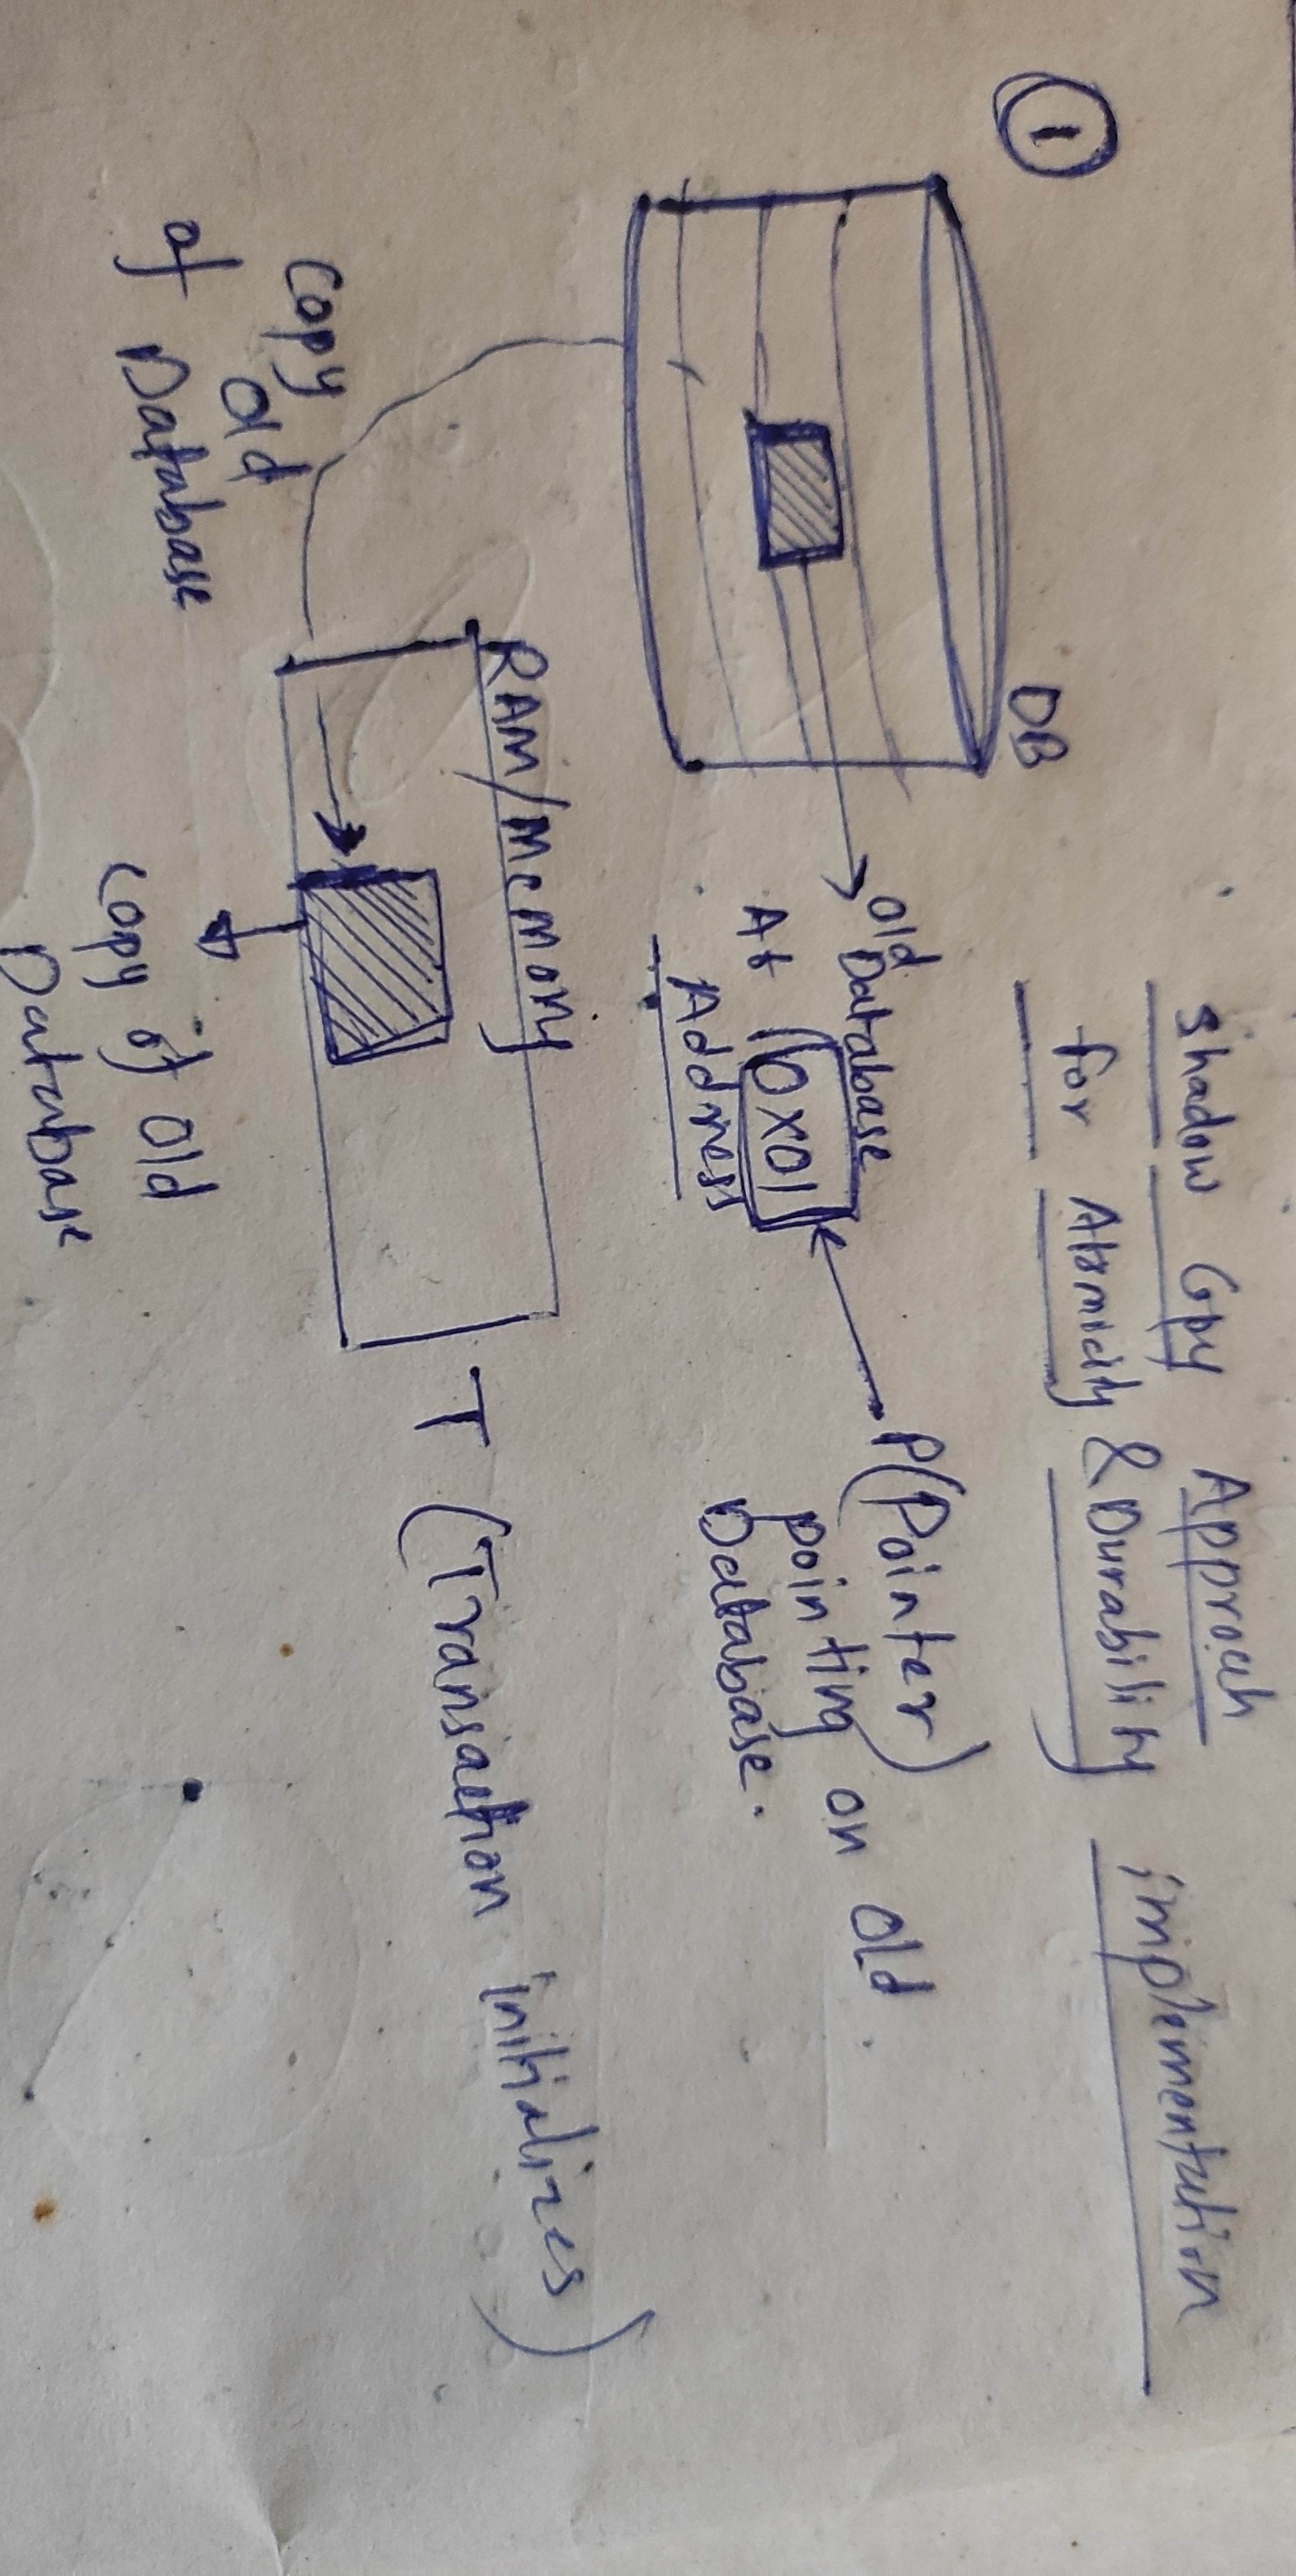 Shadow Copy Approach
for Atomicity & Durability implementation
1
DB
Old
Database
At 0x01
Address
P(Pointer)
pointing on Old
Database.
RAM/Memory
T (Transaction initializes)
Copy
of Old
Database
Copy of Old
Database